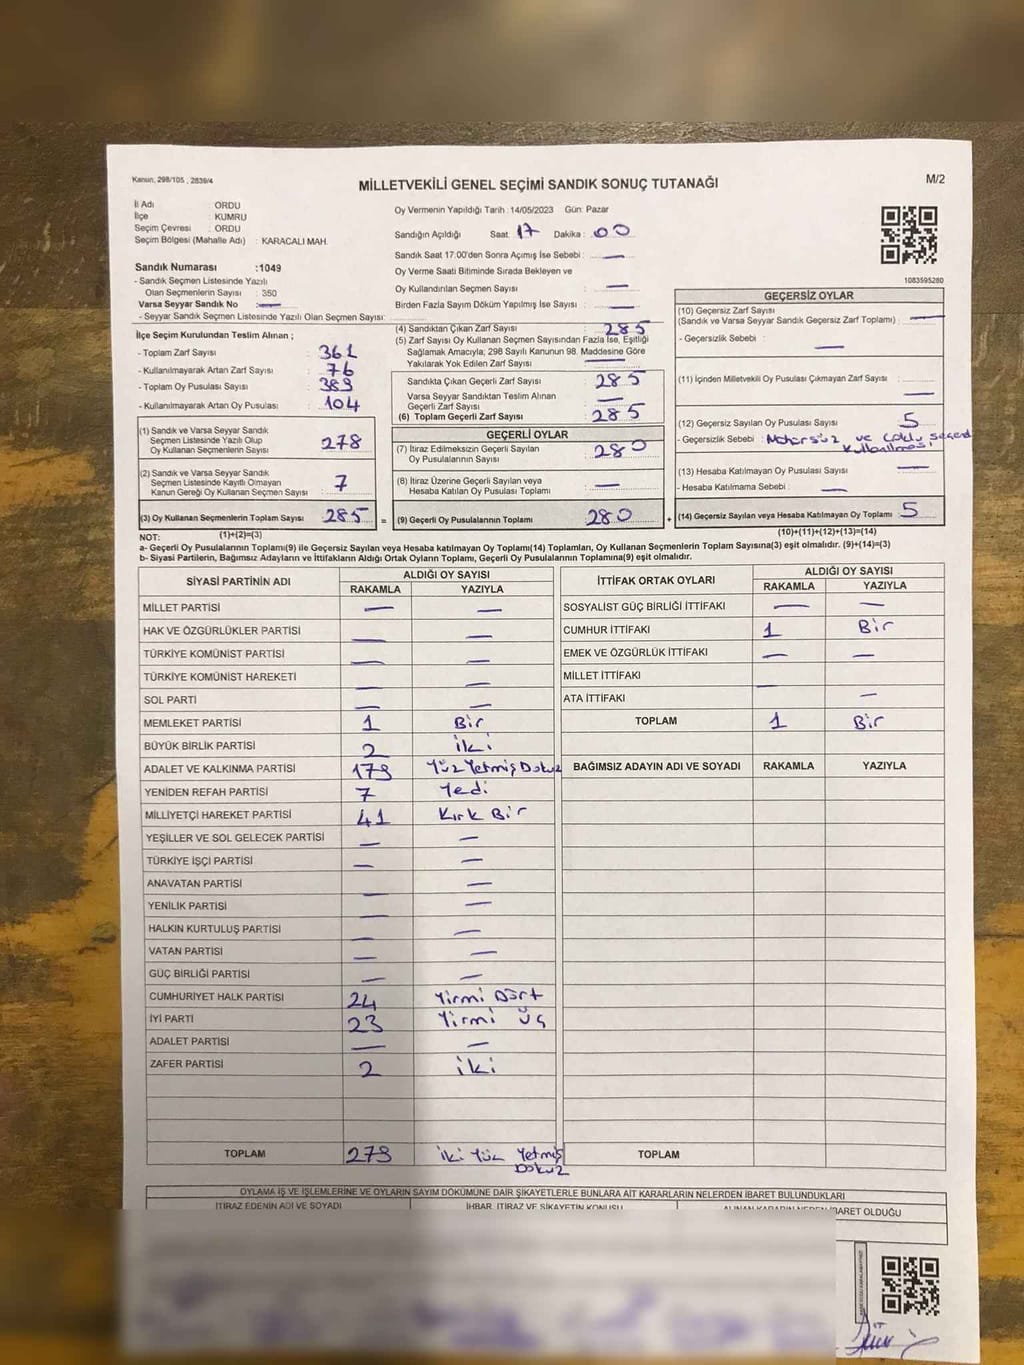 Kanun, 298/105 , 2839/4
MİLLETVEKİLİ GENEL SEÇİMİ SANDIK SONUÇ TUTANAĞI
M/2
İl Adı : ORDU
İlçe : KUMRU
Seçim Çevresi : ORDU
Seçim Bölgesi (Mahalle Adı) : KARACALI MAH.
Sandık Numarası :1049
- Sandık Seçmen Listesinde Yazılı
Olan Seçmenlerin Sayısı : 350
Varsa Seyyar Sandık No : —
- Seyyar Sandık Seçmen Listesinde Yazılı Olan Seçmen Sayısı:
Oy Vermenin Yapıldığı Tarih : 14/05/2023 Gün: Pazar
Sandığın Açıldığı Saat: 17 Dakika : 00
Sandık Saat 17:00'den Sonra Açımış İse Sebebi : —
Oy Verme Saati Bitiminde Sırada Bekleyen ve
Oy Kullandırılan Seçmen Sayısı : —
Birden Fazla Sayım Döküm Yapılmış İse Sayısı : —
1083595280
İlçe Seçim Kurulundan Teslim Alınan ;
- Toplam Zarf Sayısı : 361
- Kullanılmayarak Artan Zarf Sayısı : 76
- Toplam Oy Pusulası Sayısı : 389
- Kullanılmayarak Artan Oy Pusulası : 104
(1) Sandık ve Varsa Seyyar Sandık
Seçmen Listesinde Yazılı Olup
Oy Kullanan Seçmenlerin Sayısı 278
(2) Sandık ve Varsa Seyyar Sandık
Seçmen Listesinde Kayıtlı Olmayan
Kanun Gereği Oy Kullanan Seçmen Sayısı 7
(3) Oy Kullanan Seçmenlerin Toplam Sayısı 285 =
(4) Sandıktan Çıkan Zarf Sayısı : 285
(5) Zarf Sayısı Oy Kullanan Seçmen Sayısından Fazla İse, Eşitliği
Sağlamak Amacıyla; 298 Sayılı Kanunun 98. Maddesine Göre
Yakılarak Yok Edilen Zarf Sayısı : —
Sandıkta Çıkan Geçerli Zarf Sayısı : 285
Varsa Seyyar Sandıktan Teslim Alınan
Geçerli Zarf Sayısı : —
(6) Toplam Geçerli Zarf Sayısı : 285
GEÇERLİ OYLAR
(7) İtiraz Edilmeksizin Geçerli Sayılan
Oy Pusulasının Sayısı : 280
(8) İtiraz Üzerine Geçerli Sayılan veya
Hesaba Katılan Oy Pusulası Toplamı : —
(9) Geçerli Oy Pusulalarının Toplamı 280 +
GEÇERSİZ OYLAR
(10) Geçersiz Zarf Sayısı
(Sandık ve Varsa Seyyar Sandık Geçersiz Zarf Toplamı) : —
- Geçersizlik Sebebi : —
(11) İçinden Milletvekili Oy Pusulası Çıkmayan Zarf Sayısı : —
(12) Geçersiz Sayılan Oy Pusulası Sayısı : 5
- Geçersizlik Sebebi : Mühürsüz ve çoklu seçenek
kullanılması
(13) Hesaba Katılmayan Oy Pusulası Sayısı : —
- Hesaba Katılmama Sebebi : —
(14) Geçersiz Sayılan veya Hesaba Katılmayan Oy Toplamı : 5
NOT: (1)+(2)=(3) (10)+(11)+(12)+(13)=(14)
a- Geçerli Oy Pusulalarının Toplamı(9) ile Geçersiz Sayılan veya Hesaba katılmayan Oy Toplamı(14) Toplamları, Oy Kullanan Seçmenlerin Toplam Sayısına(3) eşit olmalıdır. (9)+(14)=(3)
b- Siyasi Partilerin, Bağımsız Adayların ve İttifakların Aldığı Ortak Oyların Toplamı, Geçerli Oy Pusulalarının Toplamına(9) eşit olmalıdır.
SİYASİ PARTİNİN ADI ALDIĞI OY SAYISI
RAKAMLA YAZIYLA
MİLLET PARTİSİ — —
HAK VE ÖZGÜRLÜKLER PARTİSİ — —
TÜRKİYE KOMÜNİST PARTİSİ — —
TÜRKİYE KOMÜNİST HAREKETİ — —
SOL PARTİ — —
MEMLEKET PARTİSİ 1 Bir
BÜYÜK BİRLİK PARTİSİ 2 iki
ADALET VE KALKINMA PARTİSİ 179 Yüz Yetmiş Dokuz
YENİDEN REFAH PARTİSİ 7 Yedi
MİLLİYETÇİ HAREKET PARTİSİ 41 Kırk Bir
YEŞİLLER VE SOL GELECEK PARTİSİ — —
TÜRKİYE İŞÇİ PARTİSİ — —
ANAVATAN PARTİSİ — —
YENİLİK PARTİSİ — —
HALKIN KURTULUŞ PARTİSİ — —
VATAN PARTİSİ — —
GÜÇ BİRLİĞİ PARTİSİ — —
CUMHURİYET HALK PARTİSİ 24 Yirmi Dört
İYİ PARTİ 23 Yirmi Üç
ADALET PARTİSİ — —
ZAFER PARTİSİ 2 iki
TOPLAM 279 iki Yüz Yetmiş
Dokuz
İTTİFAK ORTAK OYLARI ALDIĞI OY SAYISI
RAKAMLA YAZIYLA
SOSYALİST GÜÇ BİRLİĞİ İTTİFAKI — —
CUMHUR İTTİFAKI 1 Bir
EMEK VE ÖZGÜRLÜK İTTİFAKI — —
MİLLET İTTİFAKI —
ATA İTTİFAKI —
TOPLAM 1 Bir
BAĞIMSIZ ADAYIN ADI VE SOYADI RAKAMLA YAZIYLA
TOPLAM
OYLAMA İŞ VE İŞLEMLERİNE VE OYLARIN SAYIM DÖKÜMÜNE DAİR ŞİKAYETLERLE BUNLARA AİT KARARLARIN NELERDEN İBARET BULUNDUKLARI
İTİRAZ EDENİN ADI VE SOYADI İHBAR, İTİRAZ VE ŞİKAYETİN KONUSU ALINAN KARARIN NEDEN İBARET OLDUĞU